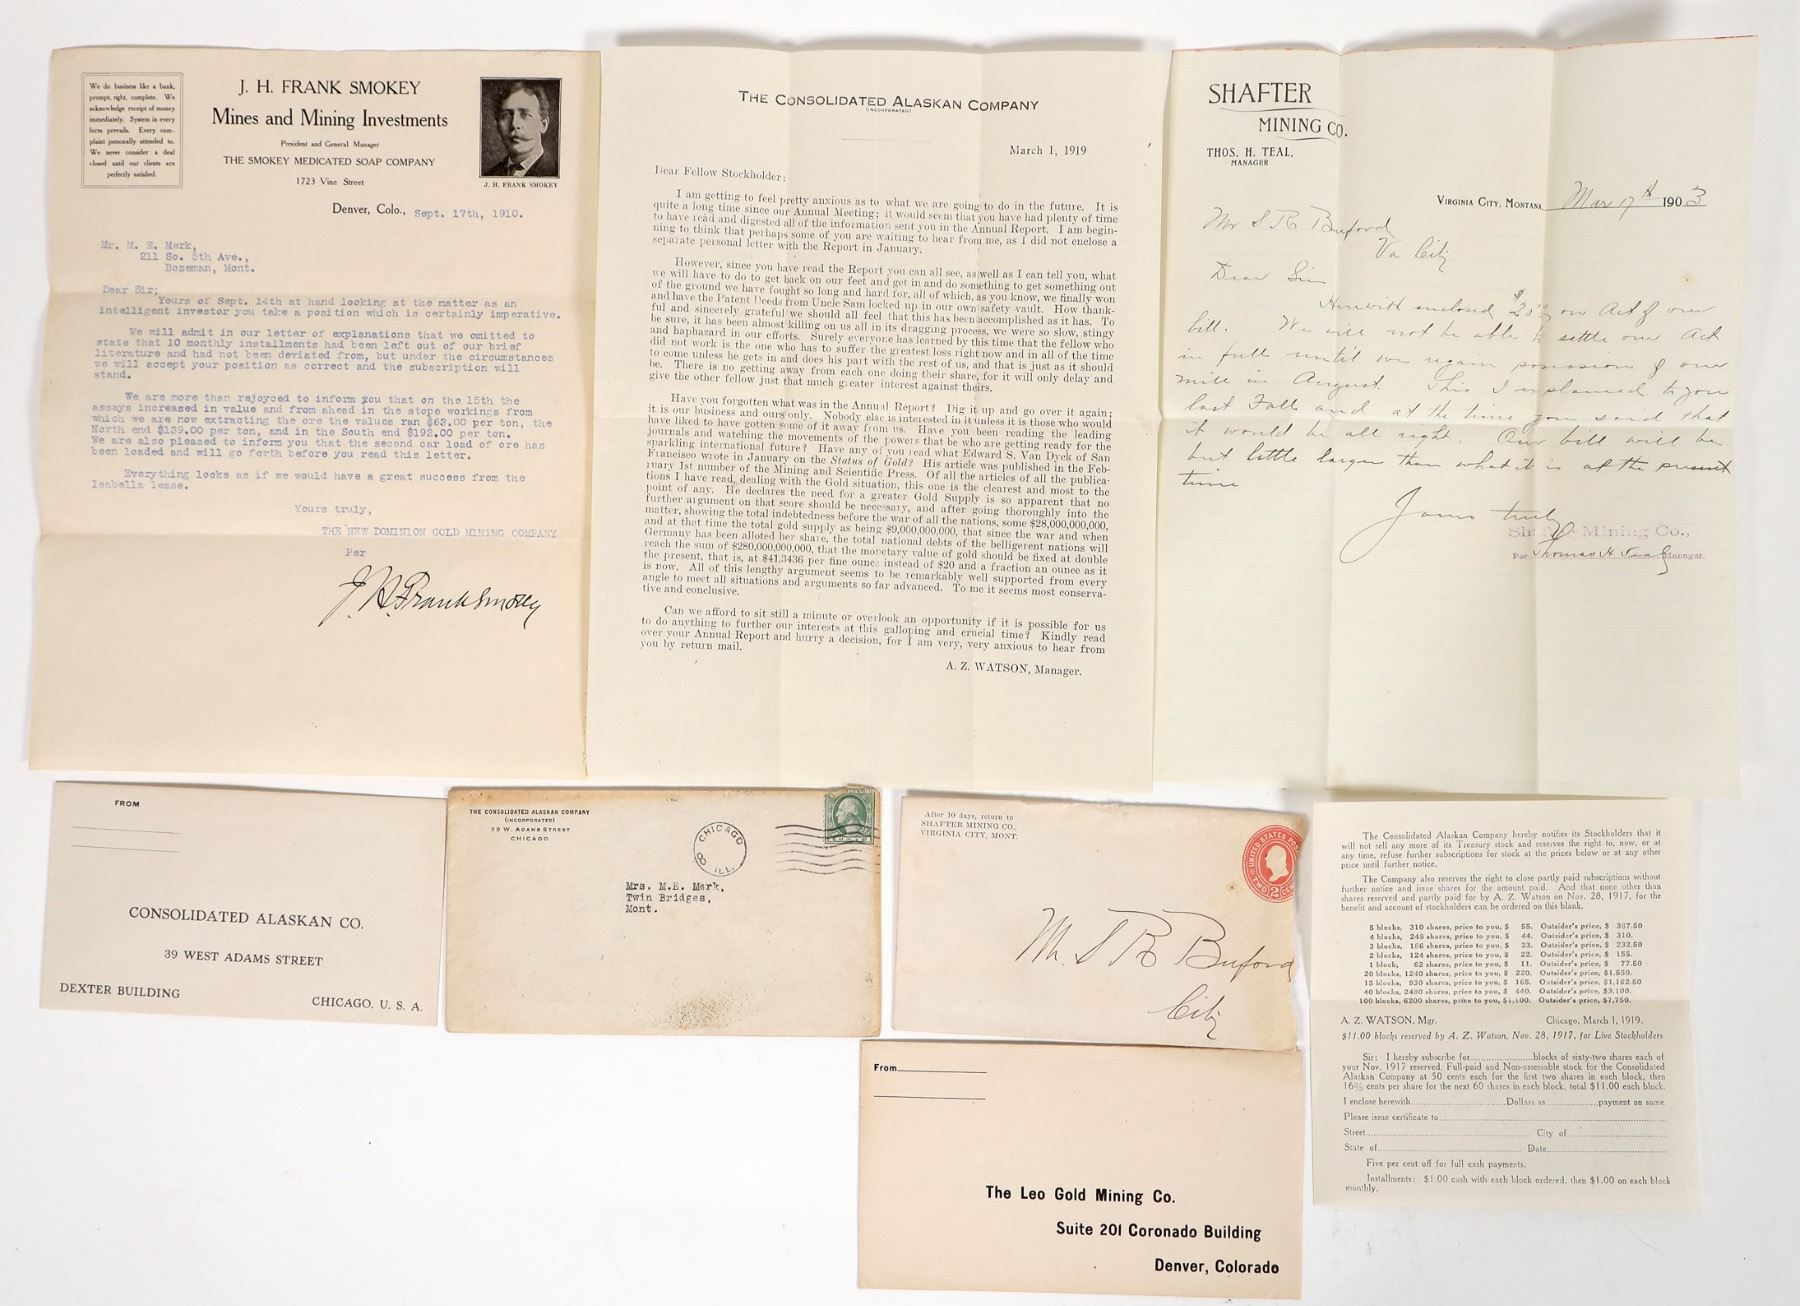 We do business like a bank,
prompt, right, complete. We
acknowledge receipt of money
immediately. System in every
form prevails. Every com-
plaint personally attended to.
We never consider a deal
closed until our clients are
perfectly satisfied.
J. H. FRANK SMOKEY
Mines and Mining Investments
President and General Manager
THE SMOKEY MEDICATED SOAP COMPANY
1723 Vine Street
J. H. FRANK SMOKEY
Denver, Colo., Sept. 17th, 1910.
Mr. M. E. Merk,
211 So. 5th Ave.,
Bozeman, Mont.
Dear Sir;
Yours of Sept. 14th at hand looking at the matter as an
intelligent investor you take a position which is certainly imperative.
We will admit in our letter of explanations that we omitted to
state that 10 monthly installments had been left out of our brief
literature and had not been deviated from, but under the circumstances
we will accept your position as correct and the subscription will
stand.
We are more than rejoyced to inform you that on the 15th the
assays increased in value and from ahead in the stope workings from
which we are now extracting the ore the values ran $63.00 per ton, the
North end $139.00 per ton, and in the South end $192.00 per ton.
We are also pleased to inform you that the second car load of ore has
been loaded and will go forth before you read this letter.
Everything looks as if we would have a great success from the
Isabella lease.
Yours truly,
THE NEW DOMINION GOLD MINING COMPANY
Per
J. H. Frank Smokey
THE CONSOLIDATED ALASKAN COMPANY
(INCORPORATED)
March 1, 1919
Dear Fellow Stockholder:
I am getting to feel pretty anxious as to what we are going to do in the future. It is
quite a long time since our Annual Meeting; it would seem that you have had plenty of time
to have read and digested all of the information sent you in the Annual Report. I am begin-
ning to think that perhaps some of you are waiting to hear from me, as I did not enclose a
separate personal letter with the Report in January.
However, since you have read the Report you can all see, as well as I can tell you, what
we will have to do to get back on our feet and get in and do something to get something out
of the ground we have fought so long and hard for, all of which, as you know, we finally won
and have the Patent Deeds from Uncle Sam locked up in our own safety vault. How thank-
ful and sincerely grateful we should all feel that this has been accomplished as it has. To
be sure, it has been almost killing on us all in its dragging process, we were so slow, stingy
and haphazard in our efforts. Surely everyone has learned by this time that the fellow who
did not work is the one who has to suffer the greatest loss right now and in all of the time
to come unless he gets in and does his part with the rest of us, and that is just as it should
be. There is no getting away from each one doing their share, for it will only delay and
give the other fellow just that much greater interest against theirs.
Have you forgotten what was in the Annual Report? Dig it up and go over it again;
it is our business and ours only. Nobody else is interested in it unless it is those who would
have liked to have gotten some of it away from us. Have you been reading the leading
journals and watching the movements of the powers that be who are getting ready for the
sparkling international future? Have any of you read what Edward S. Van Dyck of San
Francisco wrote in January on the Status of Gold? His article was published in the Feb-
ruary 1st number of the Mining and Scientific Press. Of all the articles of all the publica-
tions I have read, dealing with the Gold situation, this one is the clearest and most to the
point of any. He declares the need for a greater Gold Supply is so apparent that no
further argument on that score should be necessary, and after going thoroughly into the
matter, showing the total indebtedness before the war of all the nations, some $28,000,000,000,
and at that time the total gold supply as being $9,000,000,000, that since the war and when
Germany has been alloted her share, the total national debts of the belligerent nations will
reach the sum of $280,000,000,000, that the monetary value of gold should be fixed at double
the present, that is, at $41.3436 per fine ounce instead of $20 and a fraction an ounce as it
is now. All of this lengthy argument seems to be remarkably well supported from every
angle to meet all situations and arguments so far advanced. To me it seems most conserva-
tive and conclusive.
Can we afford to sit still a minute or overlook an opportunity if it is possible for us
to do anything to further our interests at this galloping and crucial time? Kindly read
over your Annual Report and hurry a decision, for I am very, very anxious to hear from
you by return mail.
A. Z. WATSON, Manager.
SHAFTER
MINING CO.
THOS. H. TEAL,
MANAGER
VIRGINIA CITY, MONTANA, Mar 17th 1903
Mr S R Buford
Va City
Dear Sir
Herewith enclosed $20.00 on Act of our
bill. We will not be able to settle our Act
in full until we regain possession of our
mill in August. This I explained to you
last Fall and at the time you said that
it would be all right. Our bill will be
but little larger than what it is at the present
time
Yours truly
Shafter Mining Co.,
Per Thomas H Teal Manager.
FROM
CONSOLIDATED ALASKAN CO.
39 WEST ADAMS STREET
DEXTER BUILDING
CHICAGO, U. S. A.
THE CONSOLIDATED ALASKAN COMPANY
(INCORPORATED)
39 W. ADAMS STREET
CHICAGO
CHICAGO
ILL.
Mrs. M.E. Merk,
Twin Bridges,
Mont.
After 10 days, return to
SHAFTER MINING CO.,
VIRGINIA CITY, MONT.
UNITED STATES POS
TWO 2 CE
Mr. S R Buford
City
From
The Leo Gold Mining Co.
Suite 201 Coronado Building
Denver, Colorado
The Consolidated Alaskan Company hereby notifies its Stockholders that it
will not sell any more of its Treasury stock and reserves the right to, now, or at
any time, refuse further subscriptions for stock at the prices below or at any other
price until further notice.
The Company also reserves the right to close partly paid subscriptions without
further notice and issue shares for the amount paid. And that none other than
shares reserved and partly paid for by A. Z. Watson on Nov. 28, 1917, for the
benefit and account of stockholders can be ordered on this blank.
5 blocks, 310 shares, price to you, $ 55. Outsider's price, $ 387.50
4 blocks, 248 shares, price to you, $ 44. Outsider's price, $ 310.
3 blocks, 186 shares, price to you, $ 33. Outsider's price, $ 232.50
2 blocks, 124 shares, price to you, $ 22. Outsider's price, $ 155.
1 block, 62 shares, price to you, $ 11. Outsider's price, $ 77.50
20 blocks, 1240 shares, price to you, $ 220. Outsider's price, $1,550.
15 blocks, 930 shares, price to you, $ 165. Outsider's price, $1,162.50
40 blocks, 2480 shares, price to you, $ 440. Outsider's price, $3,100.
100 blocks, 6200 shares, price to you, $1,100. Outsider's price, $7,750.
A. Z. WATSON, Mgr. Chicago, March 1, 1919.
$11.00 blocks reserved by A. Z. Watson, Nov. 28, 1917, for Live Stockholders
Sir: I hereby subscribe for........blocks of sixty-two shares each of
your Nov. 1917 reserved, Full-paid and Non-assessable stock for the Consolidated
Alaskan Company at 50 cents each for the first two shares in each block, then
16⅔ cents per share for the next 60 shares in each block, total $11.00 each block.
I enclose herewith........Dollars as........payment on same.
Please issue certificate to........
Street........City of........
State of........Date........
Five per cent off for full cash payments.
Installments: $1.00 cash with each block ordered, then $1.00 on each block
monthly.